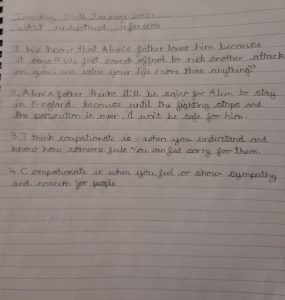 Tuesday 5th January 2021
WALT understand inference
1. We know that Alim's father loves him because
it says "We just cannot afford to risk another attack
on you we value your life more than anything"
2. Alim's father thinks it'll be safer for Alim to stay
in England, because until the fighting stops and
the persecution in over, it won't be safe for him.
3. I think compationate is when you understand and
know how someone feels You can feel sorry for them.
4. Compationate is when you feel or show sympathy
and concern for people